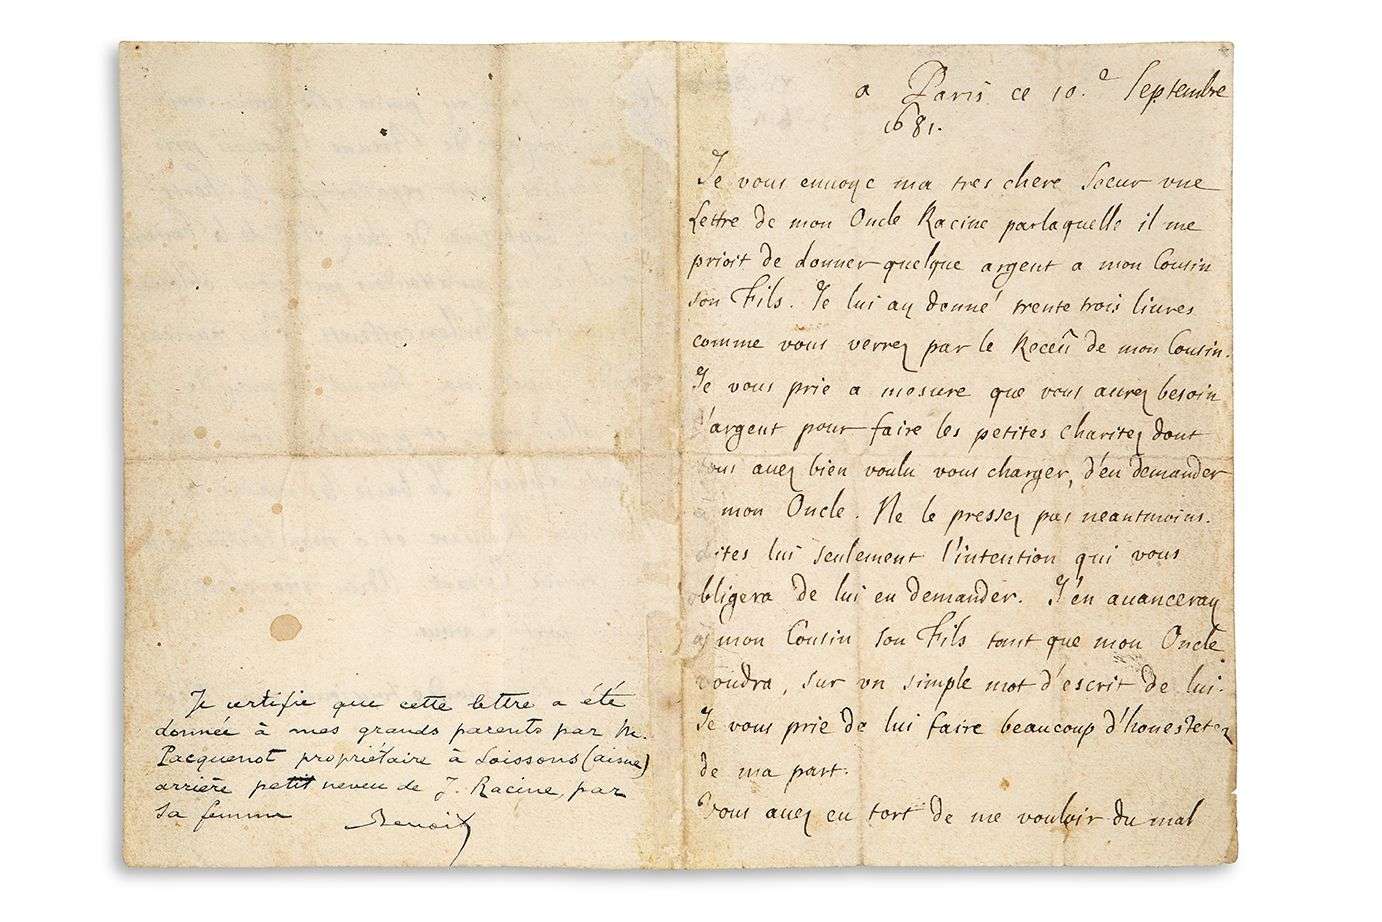 Je certifie que cette lettre a été
donnée à mes grands parents par M.
Pacquenot propriétaire à Soissons (aisne)
arrière petit neveu de J. Racine, par
sa femme
Benoit
a Paris ce 10.e Septembre
1681.
Je vous enuoye ma tres chere Soeur vne
Lettre de mon Oncle Racine parlaquelle il me
prioit de donner quelque argent a mon Cousin
son Fils. Je lui ay donné trente trois liures
comme vous verrez par le Receû de mon Cousin.
Je vous prie a mesure que vous aurez besoin
d'argent pour faire les petites charitez dont
vous auez bien voulu vous charger, d'en demander
a mon Oncle. Ne le pressez pas neantmoins.
dites lui seulement l'intention qui vous
obligera de lui en demander. J'en auanceray
a mon Cousin son Fils tant que mon Oncle
voudra, sur vn simple mot d'escrit de lui.
Je vous prie de lui faire beaucoup d'honestetez
de ma part.
Vous auez eu tort de me vouloir du mal